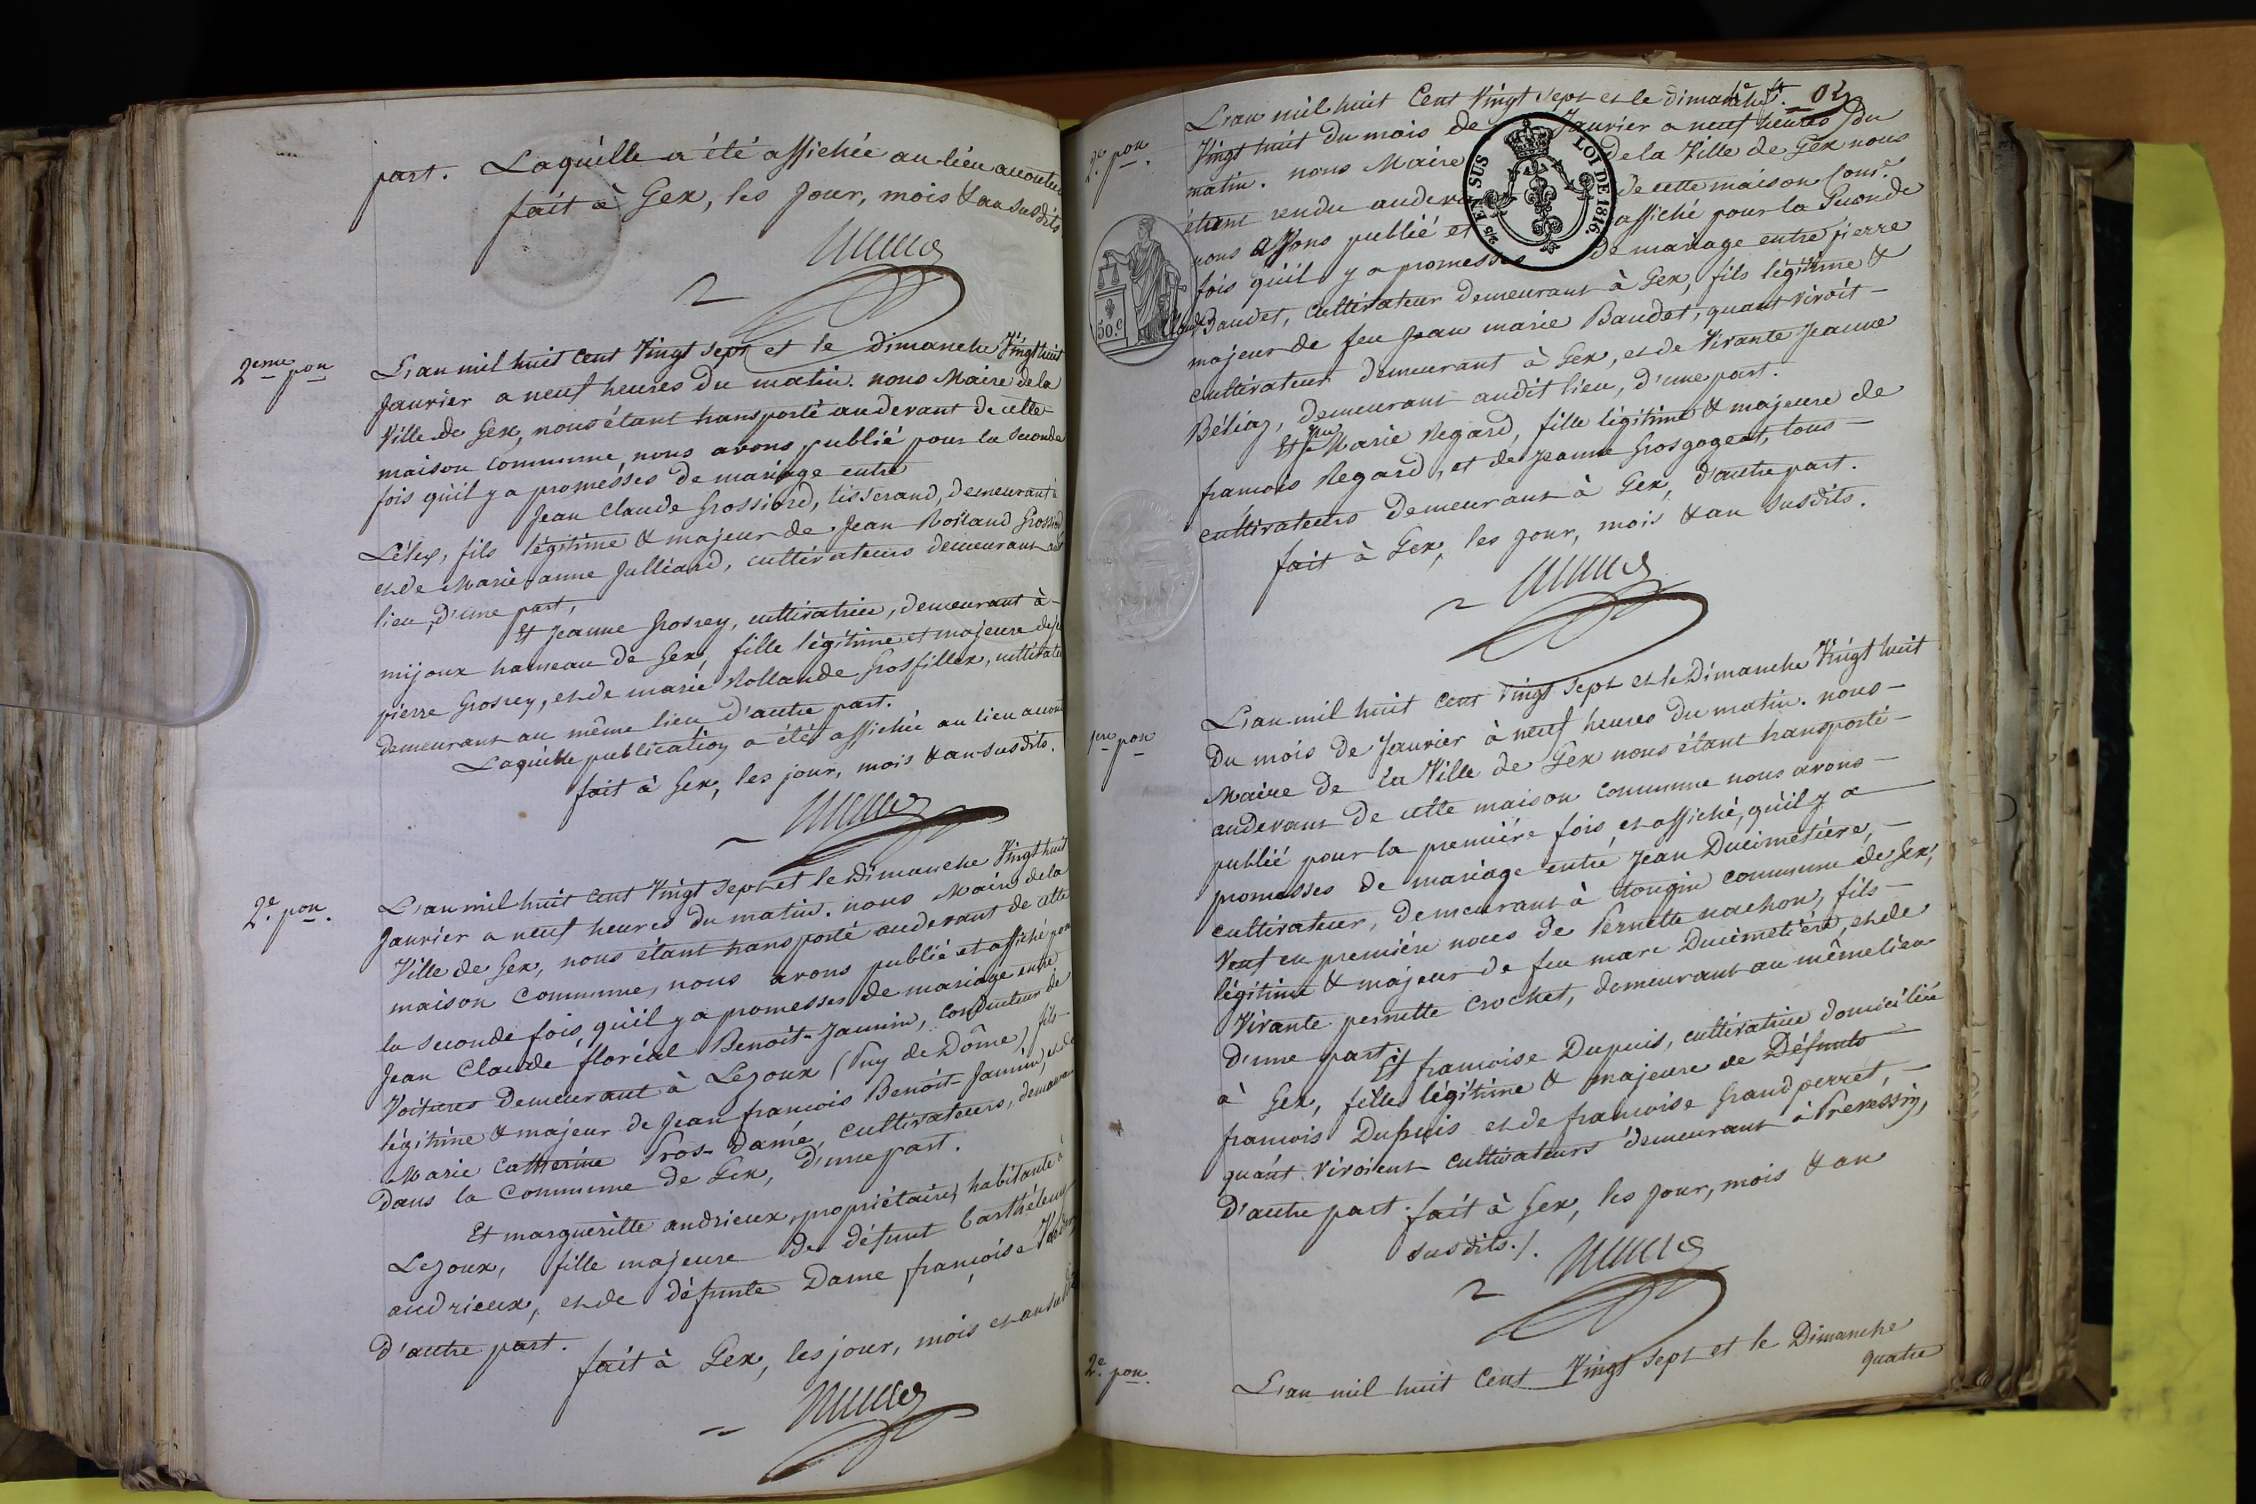 part. Laquelle a été affichée au lieu accoutu
fait à Gex, les Jour, mois & an susdits
2eme pon
L'an mil huit cent Vingt sept et le Dimanche Vingt huit
Janvier a neuf heures du matin. nous Maire de la
Ville de Gex, nous étant transporté au devant de cette
maison commune, nous avons publié pour la seconde
fois qu'il y a promésses de mariage entre
Jean Claude Grossiord, tisserand, demeurant à
Lélex, fils légitime & majeur de Jean Rolland Grossiord
et de Marie anne Julliard, cultivateurs demeurant
lieu, d'une part,
Et Jeanne Grosrey, cultivatrice, demeurant à
mijoux hameau de Gex, fille légitime et majeure de
pierre Grosrey, et de marie Rollande Grosfillex, cultivate
demeurant au même lieu d'autre part.
Laquelle publication a été affichée au lieu accout
fait à Gex, les jour, mois & an susdits.
2e. pon.
L'an mil huit cent Vingt sept et le Dimanche Vingt huit
Janvier a neuf heures du matin. nous Maire de la
Ville de Gex, nous étant transporté au devant de cette
maison commune, nous avons publié et affiché pour
la seconde fois, qu'il y a promesses de mariage entre
Jean Claude floréal Benoit-Jannin, conducteur de
Voitures demeurant à Lezoux (Puy de Dôme) fils
légitime & majeur de Jean françois Benoit-Jannin, et de
Marie Catherine Pros-Damé, cultivateurs, demeurant
dans la Commune de Gex, d'une part.
Et marguerite andrieux, propriétaire, habitante à
Lezoux, fille majeure de défunt barthélemy
andrieux, et de défunte Dame françoise
d'autre part.
fait à Gex, les jour, mois et an susdits
02
2e. pon.
L'an mil huit Cent Vingt sept et le dimanche
Vingt huit du mois de Janvier a neuf heures du
matin. nous Maire de la Ville de Gex nous
étant rendu au devant de cette maison Come.
nous Avons publié et affiché pour la Seconde
fois qu'il y a promesses de mariage entre pierre
Baudet, Cultivateur demeurant à Gex, fils légitime &
majeur de feu Jean marie Baudet, quant vivoit
cultivateur demeurant à Gex, et de Vivante Jeanne
Béliaz, demeurant audit lieu, d'une part.
Et Marie Regard, fille légitime & majeure de
françois Regard, et de Jeanne Grosgogeat, tous
cultivateurs demeurant à Gex, d'autre part.
fait à Gex, les jour, mois & an susdits.
LOI DE 1816.
ET SUS
50.c
1re pon
L'an mil huit cent Vingt sept et le Dimanche Vingt huit
Du mois de Janvier à neuf heures du matin. nous
Maire de la Ville de Gex nous étant transporté
au devant de cette maison commune nous avons
publié pour la première fois et affiché, qu'il y a
promesses de mariage entre Jean Ducimetière,
cultivateur, demeurant à tougin commune de Gex,
Veuf en première noces de Pernette nachon, fils
légitime & majeur de feu marc Ducimetière, et de
Vivante pernette Crochet, demeurant au même lieu
d'une part,
Et françoise Dupuis, cultivatrice domiciliée
à Gex, fille légitime & majeure de Défunts
françois Dupuis et de françoise Grandperret,
quant vivoient cultivateurs demeurant à Prevessin,
d'autre part. fait à Gex, les jour, mois & an
susdits./.
2e. pon.
L'an mil huit Cent Vingt sept et le Dimanche
quatre